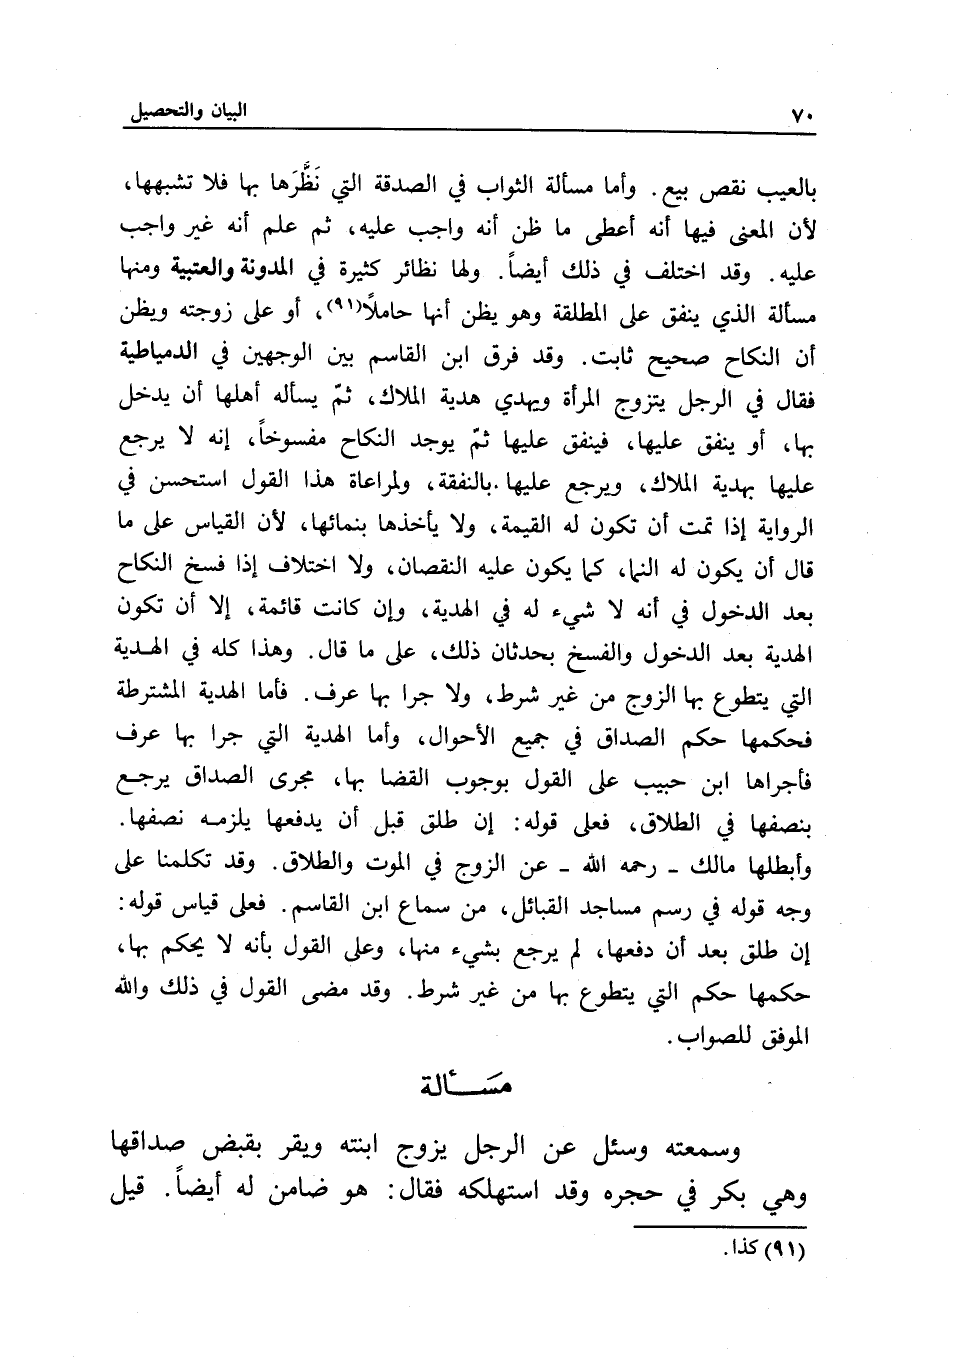 ٧٠ البيان والتحصيل
بالعيب نقص بيع. وأما مسألة الثواب في الصدقة التي نَظَّرَها بها فلا تشبهها،
لأن المعنى فيها أنه أعطى ما ظن أنه واجب عليه، ثم علم أنه غير واجب
عليه. وقد اختلف في ذلك أيضاً. ولها نظائر كثيرة في المدونة والعتبية ومنها
مسألة الذي ينفق على المطلقة وهو يظن أنها حاملاً(٩١)، أو على زوجته ويظن
أن النكاح صحيح ثابت. وقد فرق ابن القاسم بين الوجهين في الدمياطية
فقال في الرجل يتزوج المرأة ويهدي هدية الملاك، ثمّ يسأله أهلها أن يدخل
بها، أو ينفق عليها، فينفق عليها ثمّ يوجد النكاح مفسوخاً، إنه لا يرجع
عليها بهدية الملاك، ويرجع عليها بالنفقة، ولمراعاة هذا القول استحسن في
الرواية إذا تمت أن تكون له القيمة، ولا يأخذها بنمائها، لأن القياس على ما
قال أن يكون له النما، كما يكون عليه النقصان، ولا اختلاف إذا فسخ النكاح
بعد الدخول في أنه لا شيء له في الهدية، وإن كانت قائمة، إلا أن تكون
الهدية بعد الدخول والفسخ بحدثان ذلك، على ما قال. وهذا كله في الهدية
التي يتطوع بها الزوج من غير شرط، ولا جرا بها عرف. فأما الهدية المشترطة
فحكمها حكم الصداق في جميع الأحوال، وأما الهدية التي جرا بها عرف
فأجراها ابن حبيب على القول بوجوب القضا بها، مجرى الصداق يرجع
بنصفها في الطلاق، فعلى قوله: إن طلق قبل أن يدفعها يلزمه نصفها.
وأبطلها مالك ـ رحمه الله ـ عن الزوج في الموت والطلاق. وقد تكلمنا على
وجه قوله في رسم مساجد القبائل، من سماع ابن القاسم. فعلى قياس قوله:
إن طلق بعد أن دفعها، لم يرجع بشيء منها، وعلى القول بأنه لا يحكم بها،
حكمها حكم التي يتطوع بها من غير شرط. وقد مضى القول في ذلك والله
الموفق للصواب.
مَسْــأَلة
وسمعته وسئل عن الرجل يزوج ابنته ويقر بقبض صداقها
وهي بكر في حجره وقد استهلكه فقال: هو ضامن له أيضاً. قيل
(٩١) كذا.